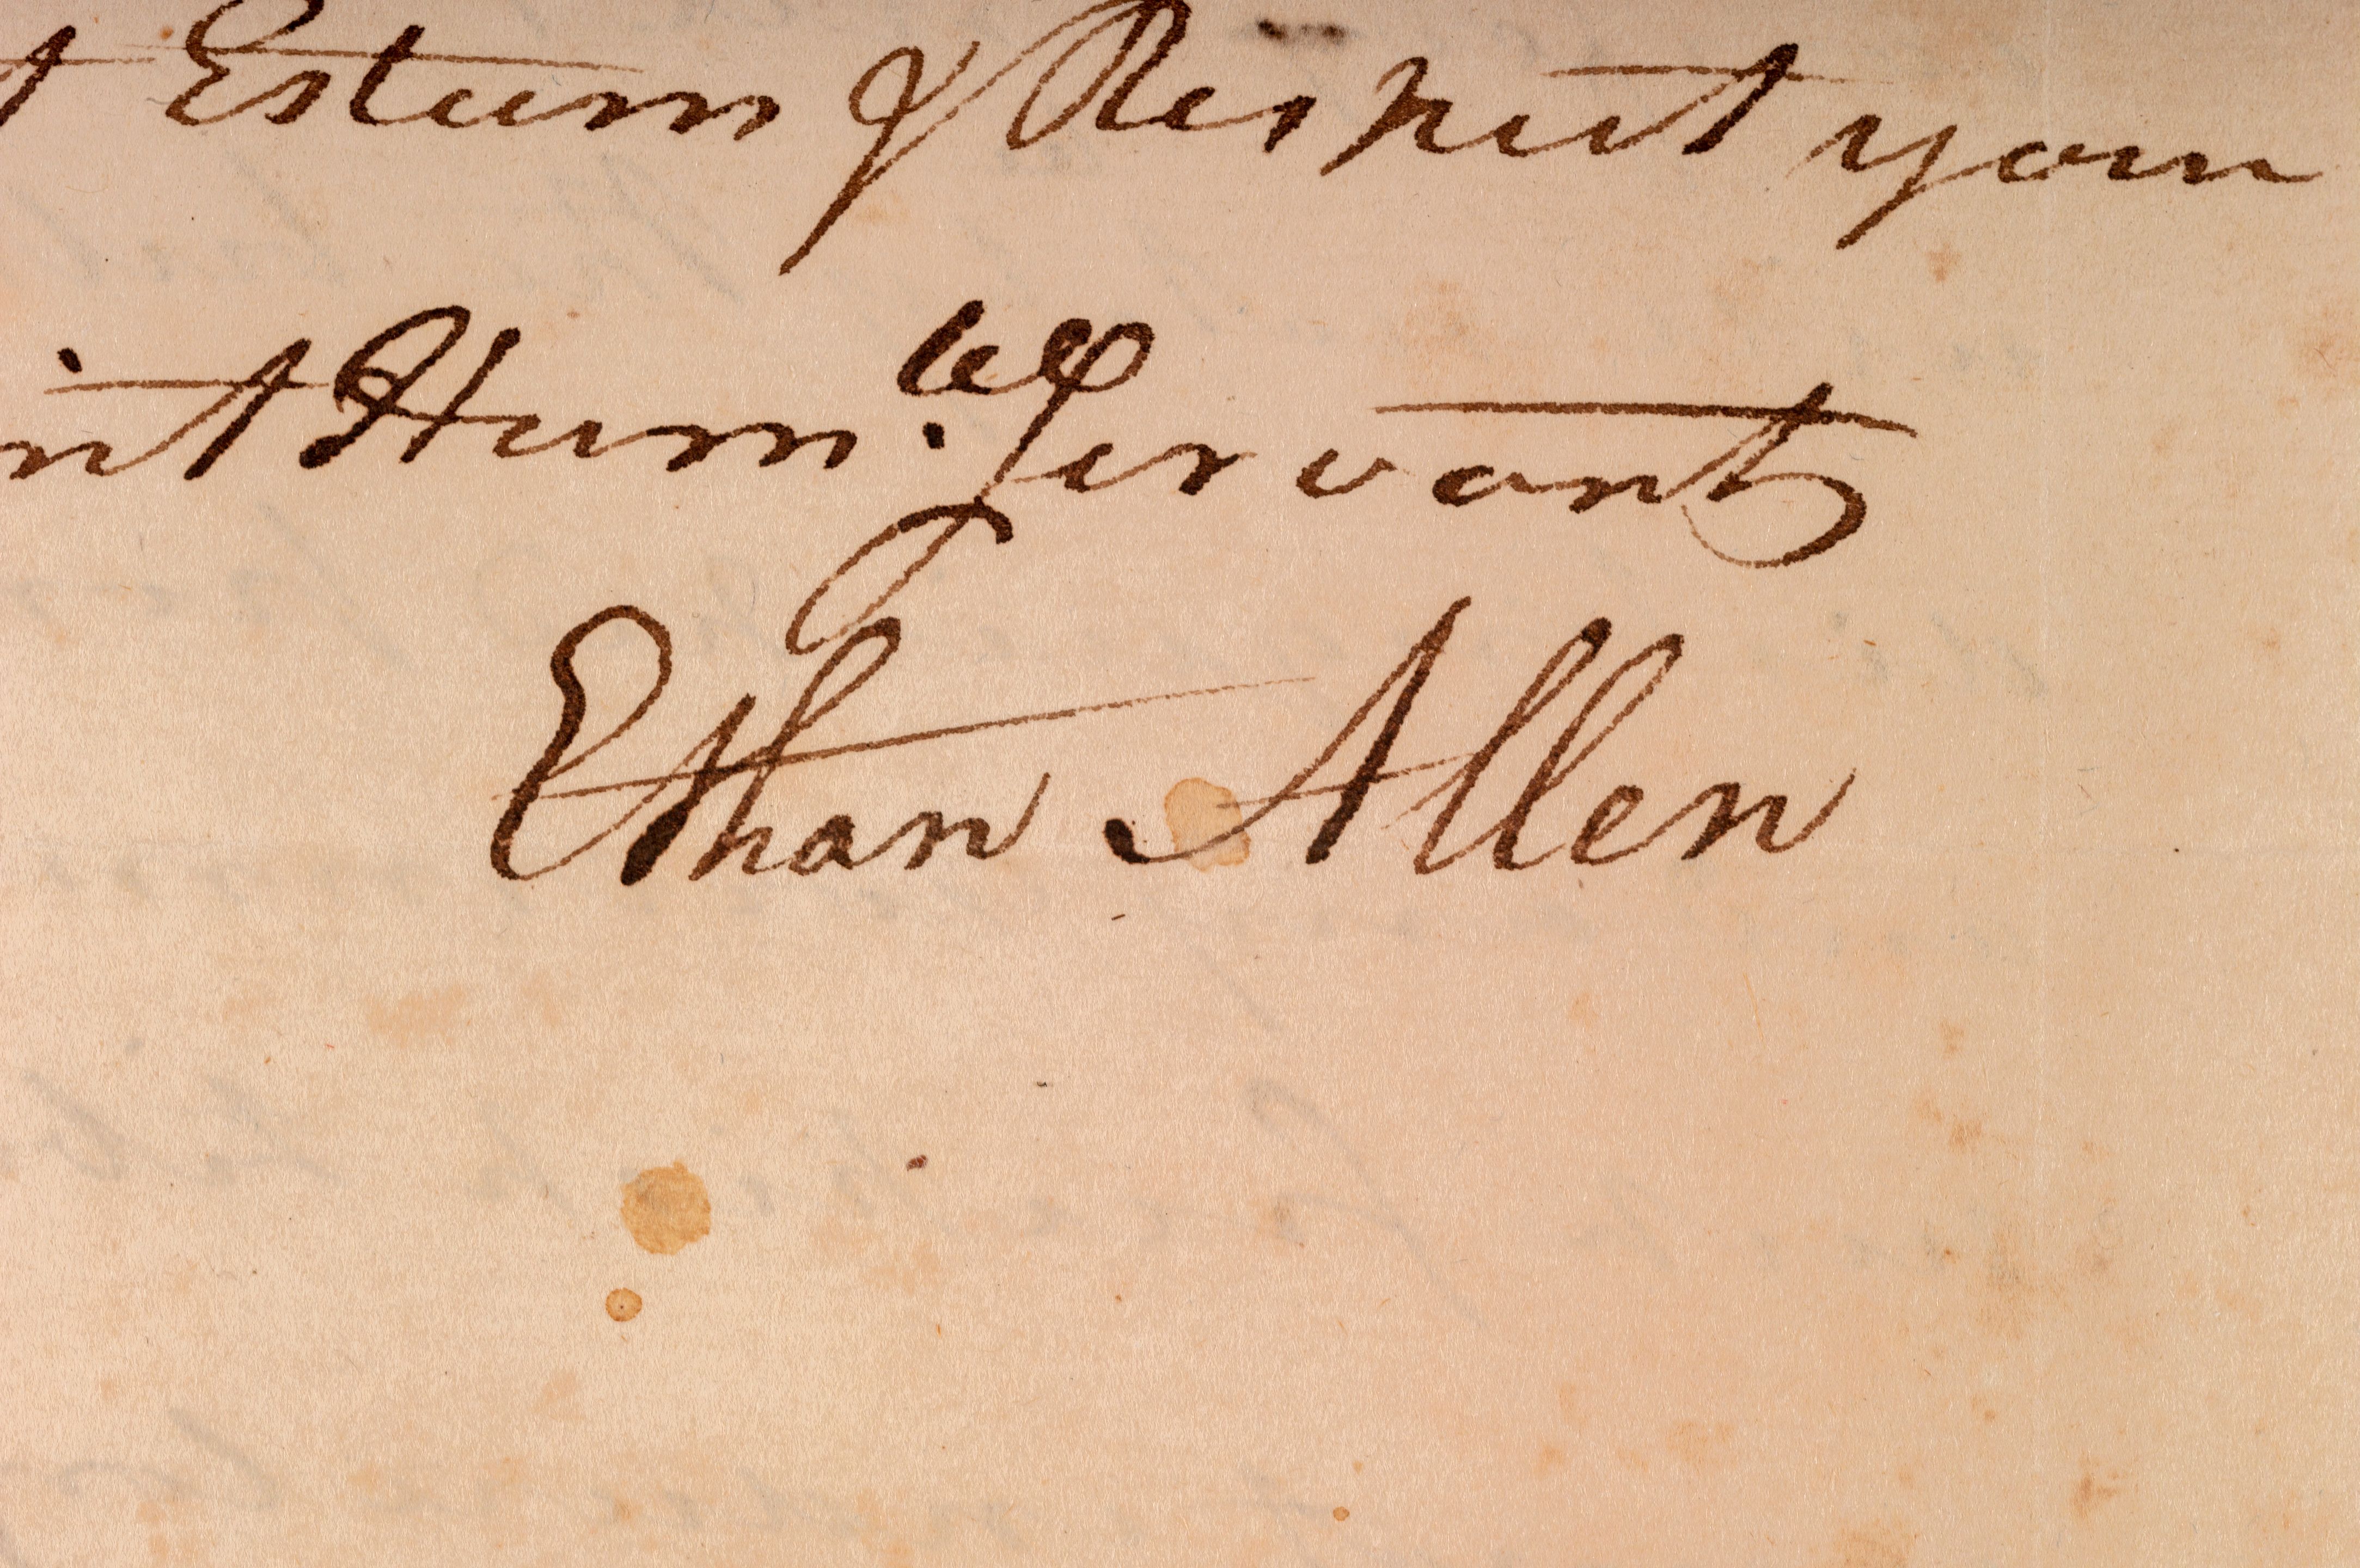 t Esteem & Respect your
nt Hum.ble Servant
Ethan Allen